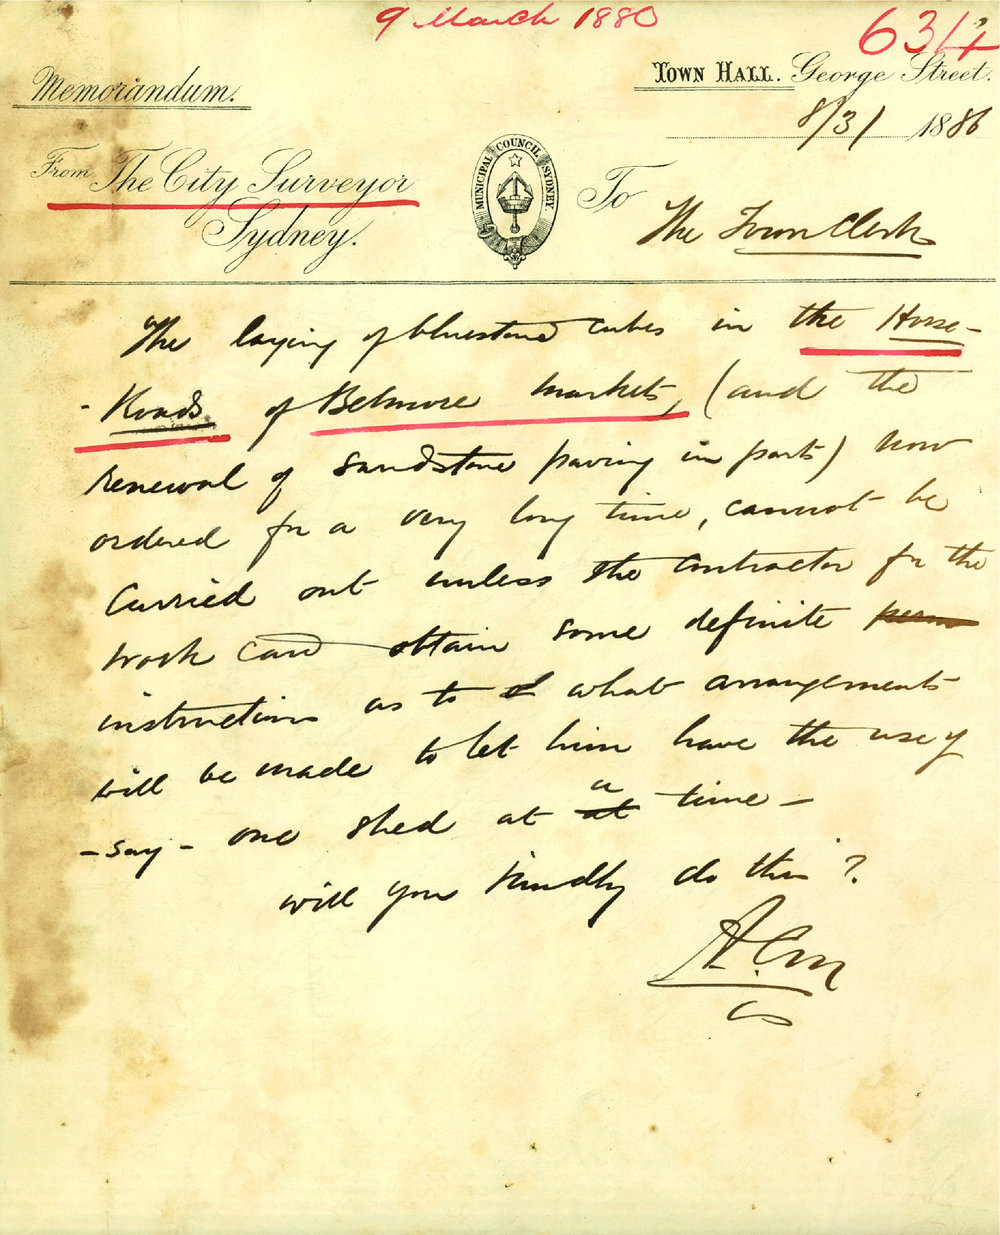 9 March 1880
6314
Memorandum.
Town Hall. George Street.
8/3/ 1886
From The City Surveyor
Sydney.
MUNICIPAL COUNCIL SYDNEY
To
The Town Clerk
The laying of bluestone cubes in the Horse-
-Roads of Belmore markets, (and the
renewal of sandstone paving in parts) now
ordered for a very long time, cannot be
carried out unless the contractor for the
work can obtain some definite
instructions as to what arrangements
will be made to let him have the use of
-say- one shed at a time-
will you kindly do this?
CS